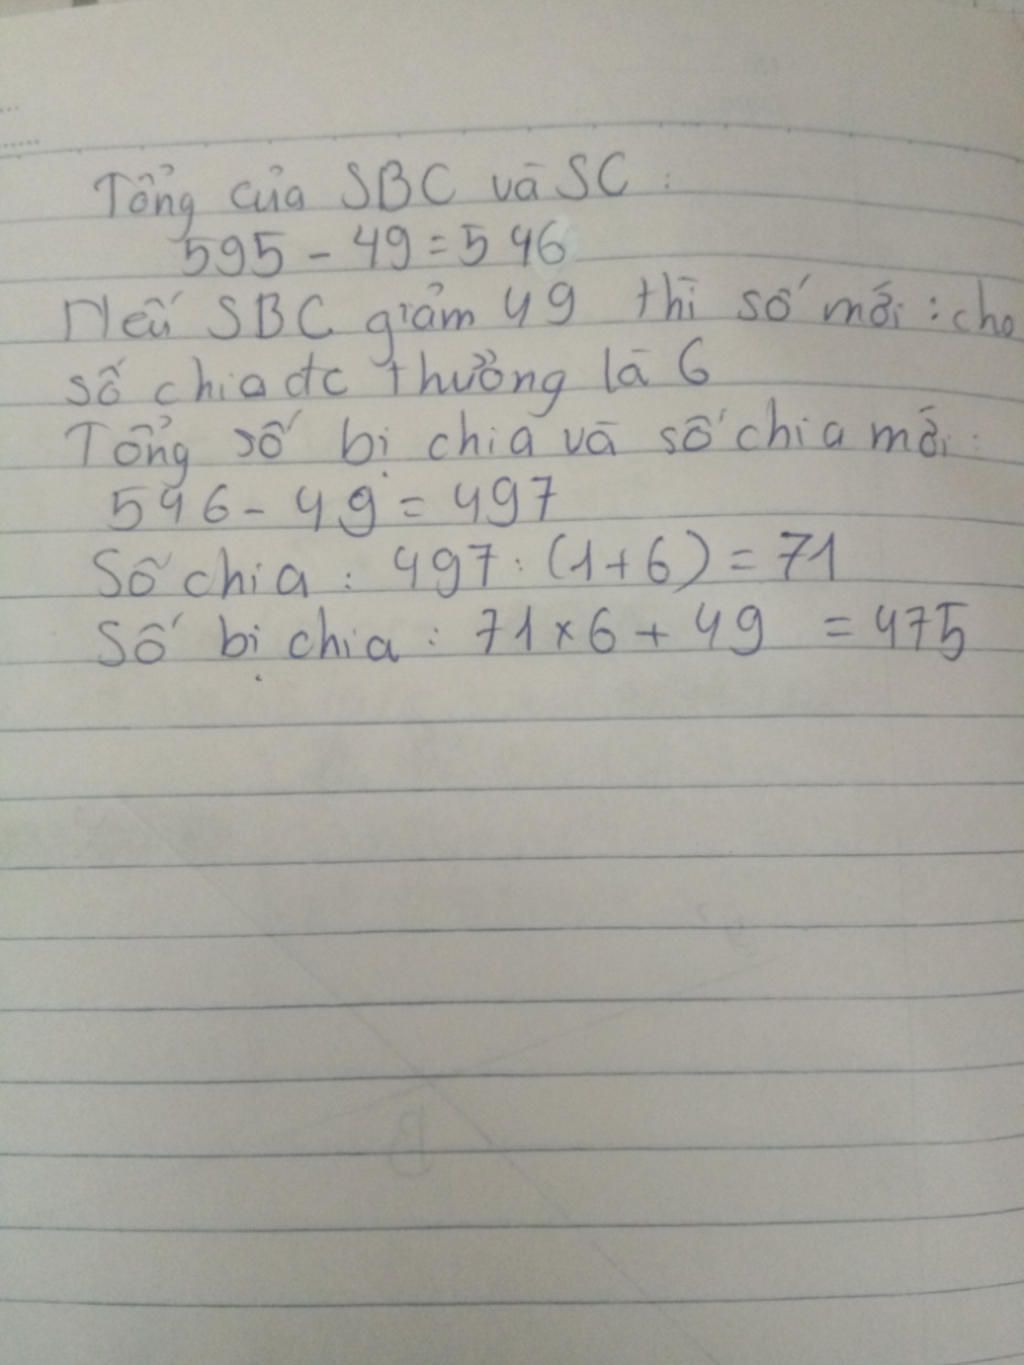 Tổng của SBC và SC :
595 - 49 = 546
Nếu SBC giảm 49 thì số mới : cho
số chia đc thưởng là 6
Tổng số bị chia và số chia mới :
546 - 49 = 497
Số chia : 497 : (1+6) = 71
Số bị chia : 71 x 6 + 49 = 475